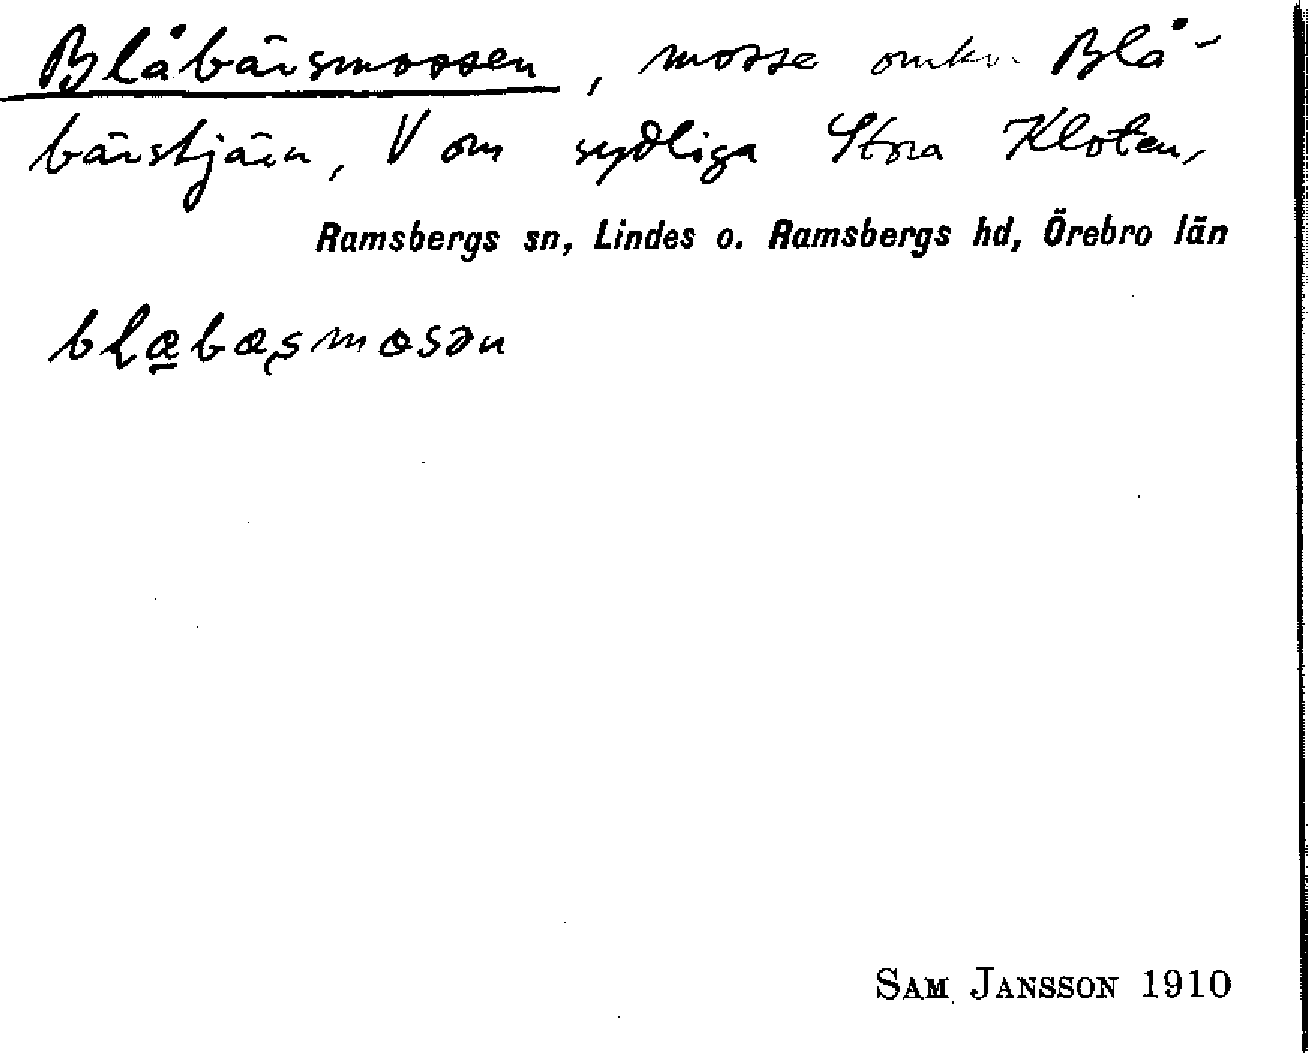 Blåbärsmossen, mosse omkr. Blå-
bärstjärn, V om sydliga Stora Kloten,
Ramsbergs sn, Lindes o. Ramsbergs hd, Örebro län
SAM JANSSON 1910